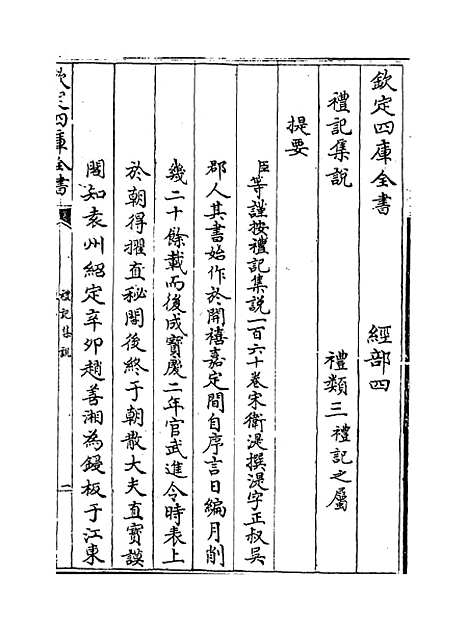 欽定四庫全書 經部四
禮記集說 禮類三禮記之屬
提要
臣等謹按禮記集說一百六十卷宋衛湜撰湜字正叔吳
郡人其書始作於開禧嘉定間自序言日編月削
幾二十餘載而後成寶慶二年官武進令時表上
於朝得擢直秘閣後終于朝散大夫直寶謨
閣知袁州紹定辛卯趙善湘為鋟板于江東
欽定四庫全書
禮記集說